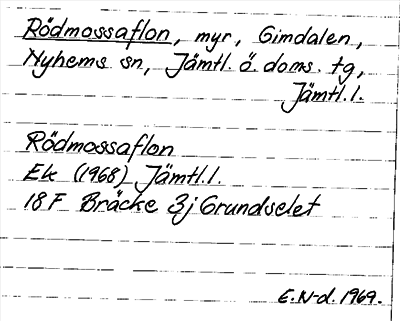 Rödmossaflon, myr, Gimdalen,
Nyhems sn, Jämtl. ö. doms. tg,
Jämtl. l.
Rödmossaflon
Ek (1968) Jämtl. l.
18F Bräcke 3j Grundselet
E. N-d. 1969.